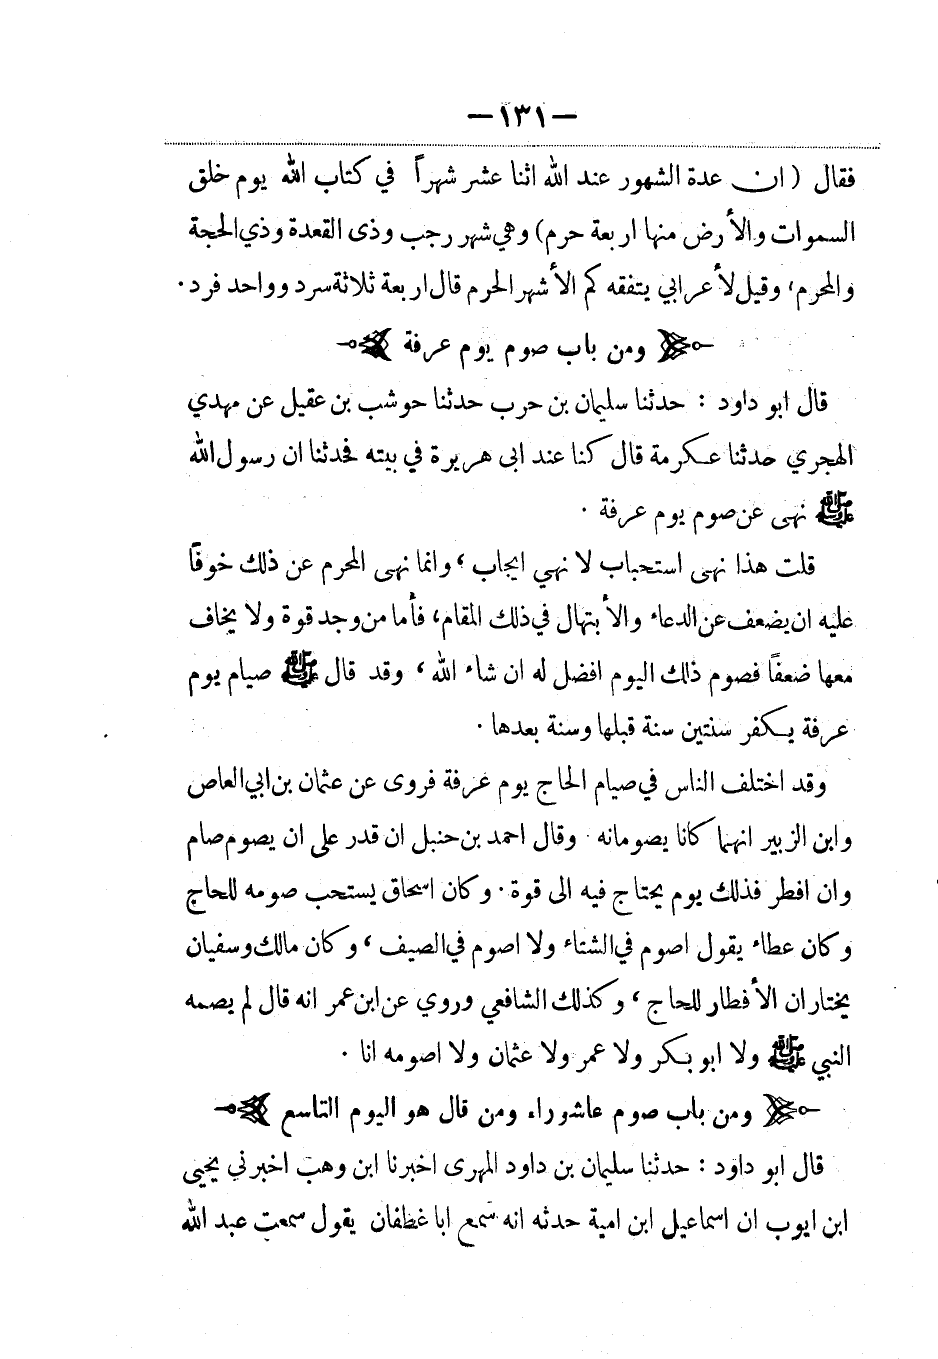 —١٣١—
فقال ( ان عدة الشهور عند الله اثنا عشر شهراً في كتاب الله يوم خلق
السموات والأرض منها اربعة حرم) وهي شهر رجب وذى القعدة وذي الحجة
والمحرم، وقيل لأعرابي يتفقه كم الأشهر الحرم قال اربعة ثلاثة سرد وواحد فرد.
ومن باب صوم يوم عرفة
قال ابو داود : حدثنا سليمان بن حرب حدثنا حوشب بن عقيل عن مهدي
الهجري حدثنا عكرمة قال كنا عند ابى هريرة في بيته فحدثنا ان رسول الله
ﷺ نهى عن صوم يوم عرفة .
قلت هذا نهى استحباب لا نهي ايجاب ، وانما نهى المحرم عن ذلك خوفًا
عليه ان يضعف عن الدعاء والأبتهال في ذلك المقام، فأما من وجد قوة ولا يخاف
معها ضعفًا فصوم ذلك اليوم افضل له ان شاء الله ، وقد قال ﷺ صيام يوم
عرفة يكفر سنتين سنة قبلها وسنة بعدها .
وقد اختلف الناس في صيام الحاج يوم عرفة فروى عن عثمان بن ابي العاص
وابن الزبير انهما كانا يصومانه . وقال احمد بن حنبل ان قدر على ان يصوم صام
وان افطر فذلك يوم يحتاج فيه الى قوة . وكان اسحاق يستحب صومه للحاج
وكان عطاء يقول اصوم في الشتاء ولا اصوم في الصيف ، وكان مالك وسفيان
يختاران الأفطار للحاج ، وكذلك الشافعي وروي عن ابن عمر انه قال لم يصمه
النبي ﷺ ولا ابو بكر ولا عمر ولا عثمان ولا اصومه انا .
ومن باب صوم عاشوراء ومن قال هو اليوم التاسع
قال ابو داود : حدثنا سليمان بن داود المهرى اخبرنا ابن وهب اخبرني يحيى
ابن ايوب ان اسماعيل ابن امية حدثه انه سمع ابا غطفان يقول سمعت عبد الله